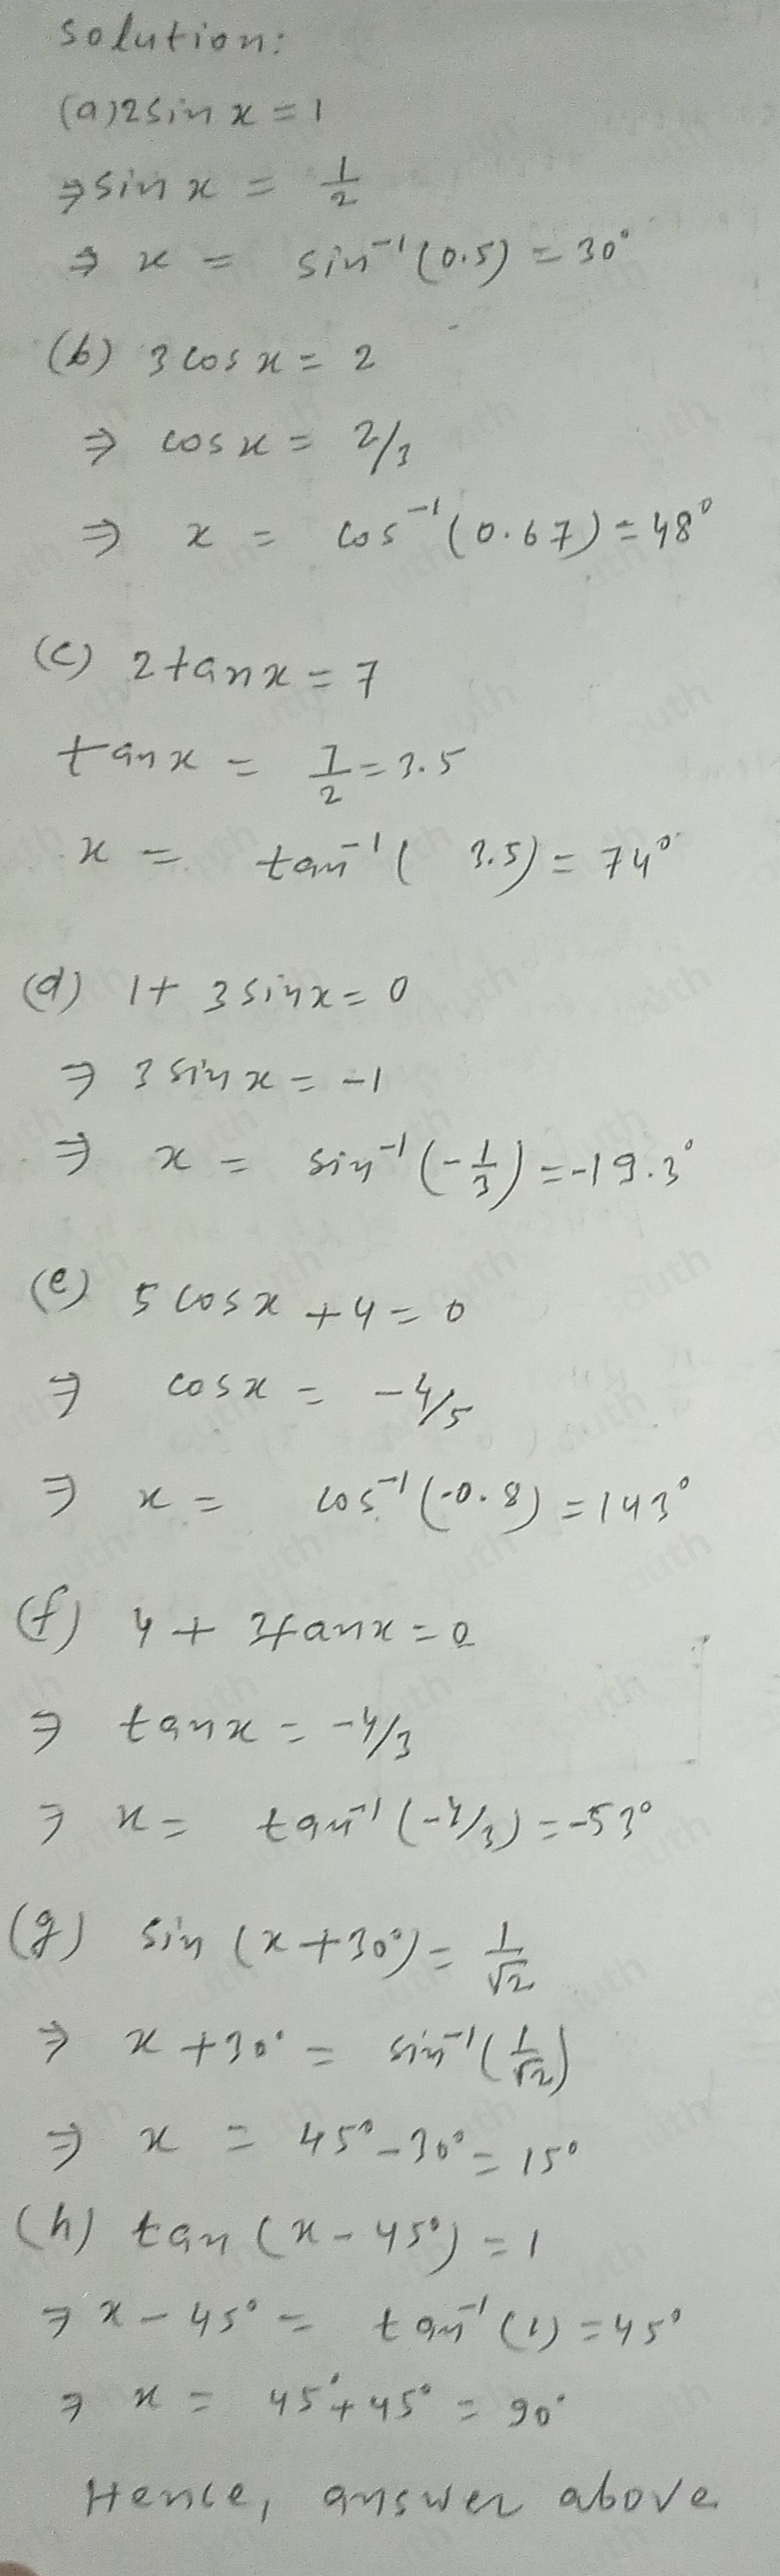 solution:
(a) 2 sin x = 1
⇒ sin x = 1/2
⇒ x = sin⁻¹(0.5) = 30°
(b) 3 cos x = 2
⇒ cos x = 2/3
⇒ x = cos⁻¹(0.67) = 48°
(c) 2tanx = 7
tanx = 7/2 = 3.5
x = tan⁻¹( 3.5) = 74°
(d) 1 + 3 sinx = 0
⇒ 3 sin x = -1
⇒ x = sin⁻¹(-1/3) = -19.3°
(e) 5 cosx + 4 = 0
⇒ cosx = -4/5
⇒ x = cos⁻¹(-0.8) = 143°
(f) 4 + 3tanx = 0
⇒ tanx = -4/3
⇒ x = tan⁻¹(-4/3) = -53°
(g) sin (x + 30°) = 1/√2
⇒ x + 30° = sin⁻¹(1/√2)
⇒ x = 45° - 30° = 15°
(h) tan (x - 45°) = 1
⇒ x - 45° = tan⁻¹(1) = 45°
⇒ x = 45° + 45° = 90°
Hence, answer above